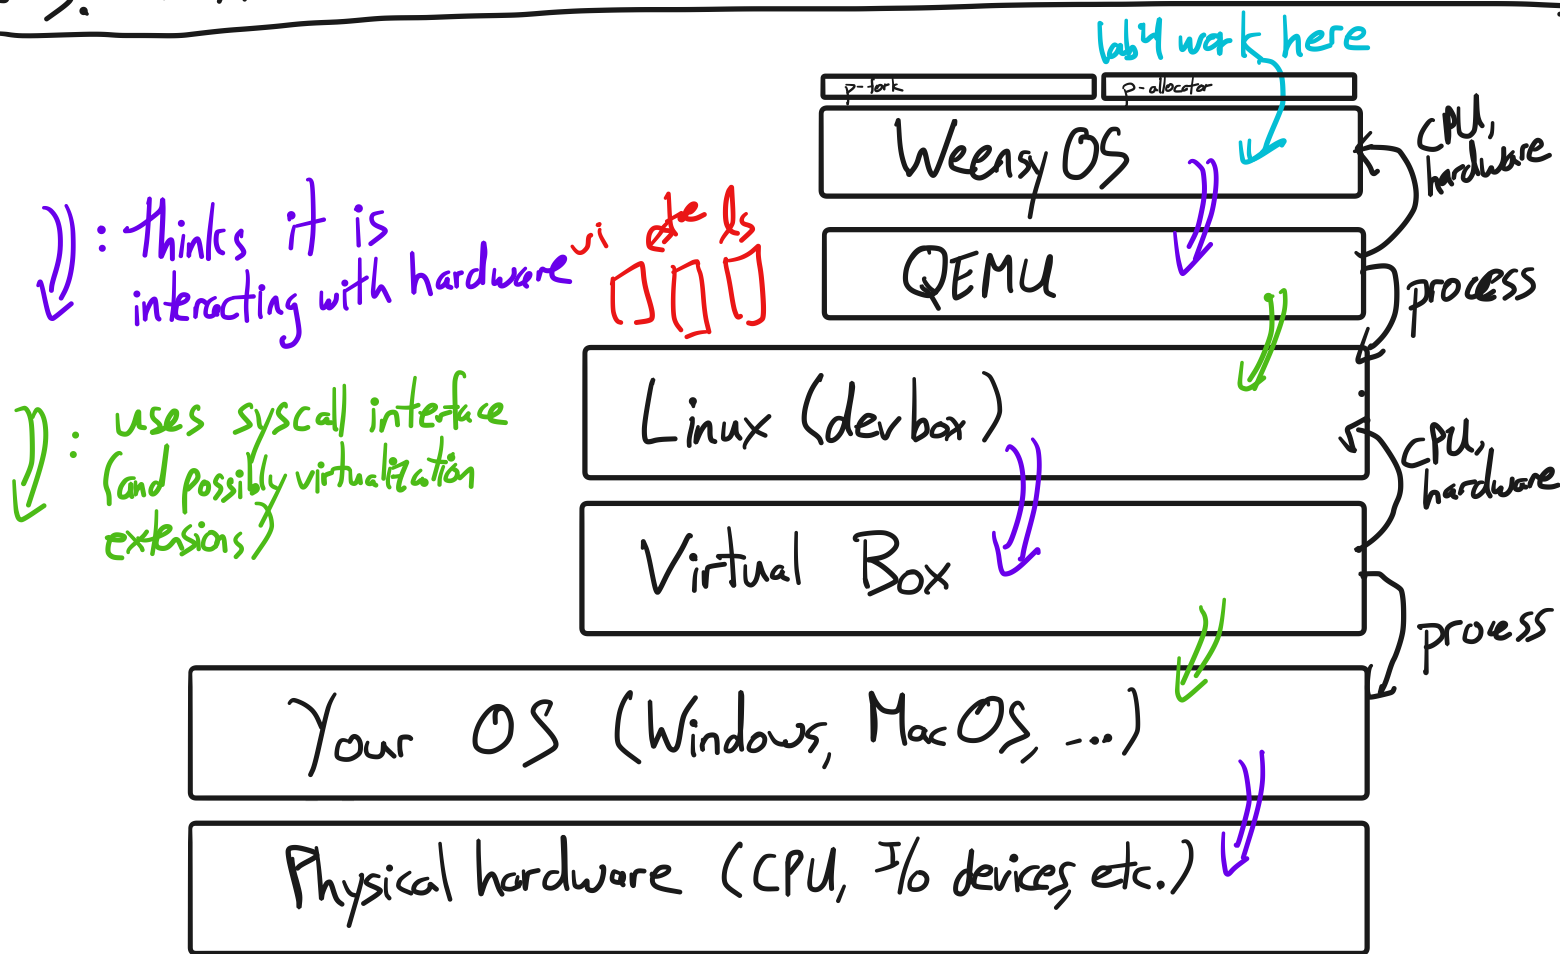 lab4 work here
p-fork
p-allocator
WeensyOS
CPU,
hardware
: thinks it is
interacting with hardware
vi ete ls
QEMU
process
Linux (devbox)
: uses syscall interface
(and possibly virtualization
extensions)
CPU,
hardware
Virtual Box
process
Your OS (Windows, MacOS, ...)
Physical hardware (CPU, I/O devices, etc.)